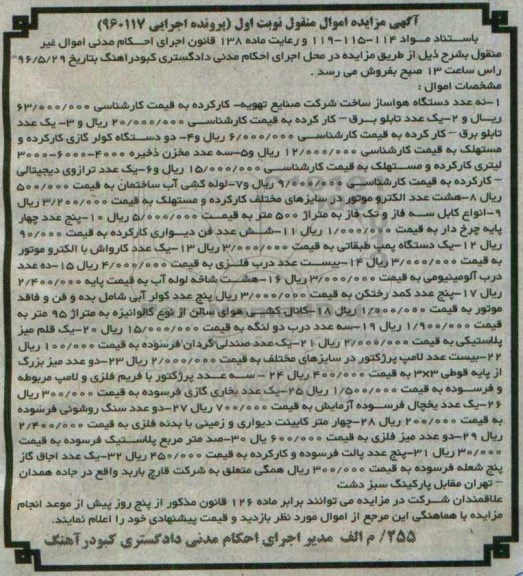 آگهی مزایده اموال منقول نوبت اول (پرونده اجرایی ۹۶۰۱۱۷)
باستناد مواد ۱۱۴-۱۱۵-۱۱۹ و رعایت ماده ۱۳۸ قانون اجرای احکام مدنی اموال غیر
منقول بشرح ذیل از طریق مزایده در محل اجرای احکام مدنی دادگستری کبودراهنگ بتاریخ ۹۶/۵/۲۹
راس ساعت ۱۳ صبح بفروش می رسد .
مشخصات اموال :
۱-نه عدد دستگاه هواساز ساخت شرکت صنایع تهویه- کارکرده به قیمت کارشناسی ۶۳/۰۰۰/۰۰۰
ریال و ۲-یک عدد تابلو برق – کار کرده به قیمت کارشناسی ۲۰/۰۰۰/۰۰۰ ریال و ۳- یک عدد
تابلو برق – کار کرده به قیمت کارشناسی ۶/۰۰۰/۰۰۰ ریال و۴- دو دستگاه کولر گازی کارکرده و
مستهلک به قیمت کارشناسی ۱۲/۰۰۰/۰۰۰ ریال و۵-سه عدد مخزن ذخیره ۴۰۰۰-۶۰۰۰-۳۰۰۰
لیتری کارکرده و مستهلک به قیمت کارشناسی ۱۵/۰۰۰/۰۰۰ ریال و۶-یک عدد ترازوی دیجیتالی
– کارکرده به قیمت کارشناسی ۹/۰۰۰/۰۰۰ ریال و۷-لوله کشی آب ساختمان به قیمت ۵۰۰/۰۰۰
ریال ۸-هشت عدد الکترو موتور در سایزهای مختلف کارکرده و مستهلک به قیمت ۳/۲۰۰/۰۰۰ ریال
۹-انواع کابل سه فاز و تک فاز به متراژ ۵۰۰ متر به قیمت ۵/۰۰۰/۰۰۰ ریال ۱۰-پنج عدد چهار
پایه چرخ دار به قیمت ۱/۰۰۰/۰۰۰ ریال ۱۱-شش عدد فن دیواری کارکرده به قیمت ۹۰/۰۰۰
ریال ۱۲-یک دستگاه پمپ طبقاتی به قیمت ۳/۰۰۰/۰۰۰ ریال ۱۳-یک عدد کارواش با الکترو موتور
به قیمت ۳/۰۰۰/۰۰۰ ریال ۱۴-بیست عدد درب فلزی به قیمت ۴/۰۰۰/۰۰۰ ریال ۱۵-ده عدد
درب آلومینیومی به قیمت ۳/۰۰۰/۰۰۰ ریال ۱۶-هشت شاخه لوله آب به قیمت پایه ۲/۴۰۰/۰۰۰
ریال ۱۷-پنج عدد کمد رختکن به قیمت ۳/۰۰۰/۰۰۰ ریال پنج عدد کولر آبی شامل بده و فن و فاقد
موتور به قیمت ۱/۰۰۰/۰۰۰ ریال ۱۸-کانال کشی هوای سالن از نوع گالوانیزه به متراژ ۹۵ متر به
قیمت ۱/۹۰۰/۰۰۰ ریال ۱۹-سه عدد درب دو لنگه به قیمت ۱۵/۰۰۰/۰۰۰ ریال ۲۰-یک قلم میز
پلاستیکی به قیمت ۲/۰۰۰/۰۰۰ ریال ۲۱-یک عدد صندلی گردان فرسوده به قیمت ۱۰۰/۰۰۰ ریال
۲۲-بیست عدد لامپ پرژکتور در سایزهای مختلف به قیمت ۲/۰۰۰/۰۰۰ ریال ۲۳-دو عدد میز بزرگ
از پایه قوطی ۳×۳ به قیمت ۴۰۰/۰۰۰ ریال ۲۴ – سه عدد پرژکتور با فریم فلزی و لامپ مربوطه
و فرسوده به قیمت ۱/۵۰۰/۰۰۰ ریال ۲۵-یک عدد بخاری گازی فرسوده به قیمت ۳۰۰/۰۰۰ ریال
۲۶-یک عدد یخچال فرسوده آزمایش به قیمت ۷۰۰/۰۰۰ ریال ۲۷-دو عدد سنگ روشوئی فرسوده
به قیمت ۲۰۰/۰۰۰ ریال ۲۸-چهار متر کابینت دیواری و زمینی با بدنه فلزی به قیمت ۲/۴۰۰/۰۰۰
ریال ۲۹-دو عدد میز فلزی به قیمت ۶۰۰/۰۰۰ یال ۳۰-صد متر مربع پلاستیک فرسوده به قیمت
۳۰/۰۰۰ ریال ۳۱-پنج عدد پالت فرسوده و کارکرده به قیمت ۴۵۰/۰۰۰ ریال ۳۲-یک عدد اجاق گاز
پنج شعله فرسوده به قیمت ۳۰۰/۰۰۰ ریال همگی متعلق به شرکت قارچ باربد واقع در جاده همدان
– تهران مقابل پارکینگ سبز دشت
علاقمندان شرکت در مزایده می توانند برابر ماده ۱۲۶ قانون مذکور از پنج روز پیش از موعد انجام
مزایده با هماهنگی این مرجع از اموال مورد نظر بازدید و قیمت پیشنهادی خود را اعلام نمایند.
۲۵۵/ م الف مدیر اجرای احکام مدنی دادگستری کبودرآهنگ